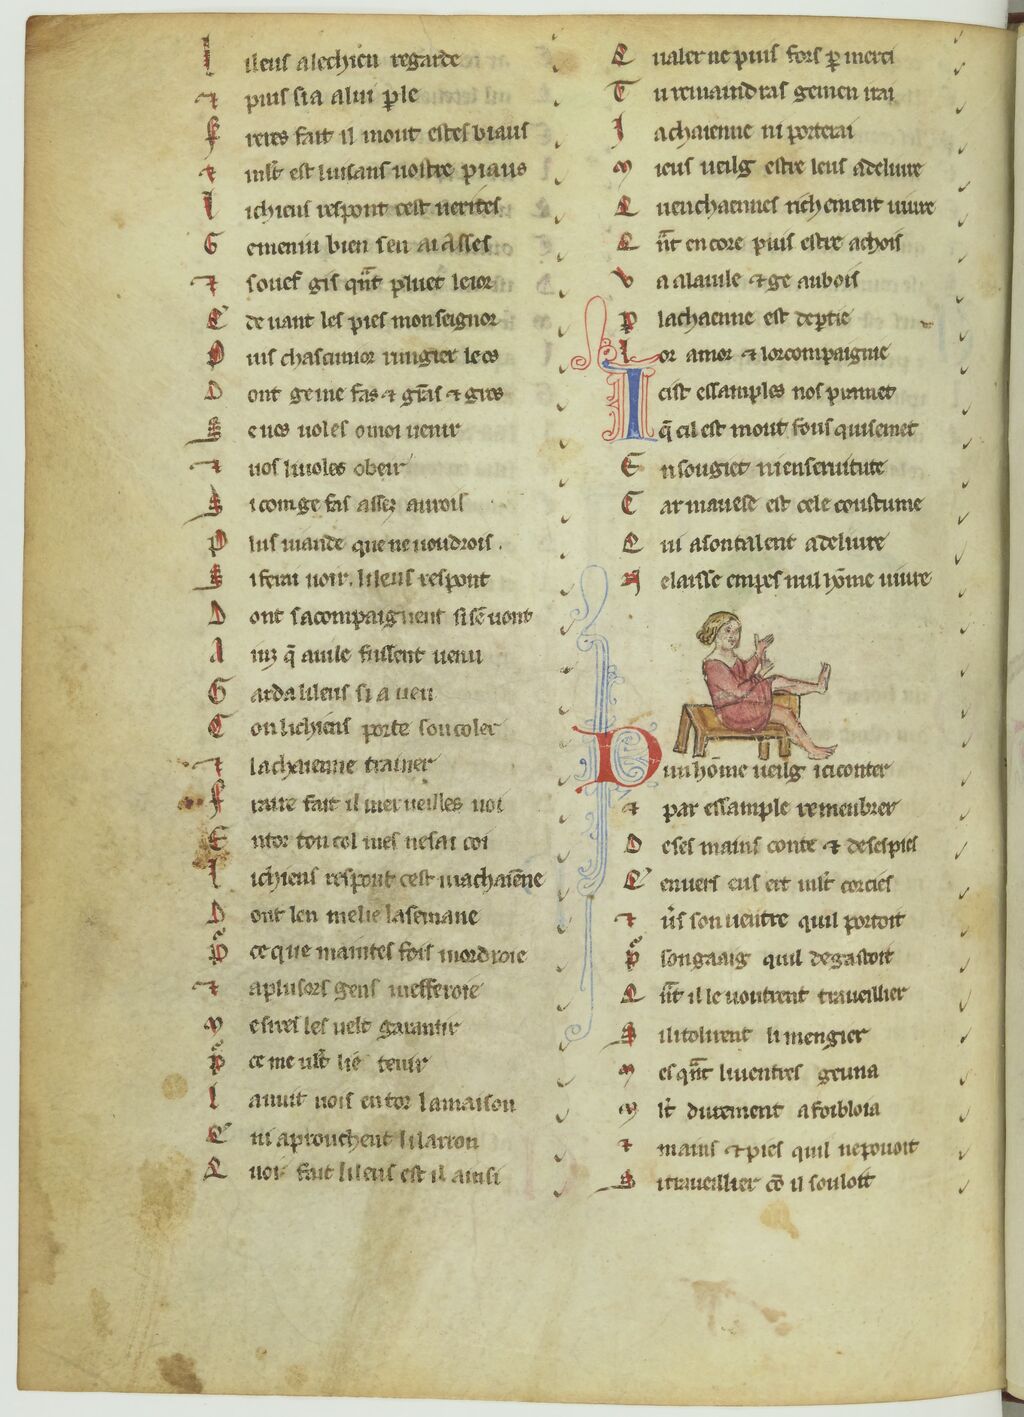 I leus a le chien regarde
⁊ puis si a a lui ꝑle
F reres fait il mout estes biaus
⁊ ml̃t est luisans uostre piaus
L i chiens respont cest uerites
G e meniu bien sen ai asses
⁊ souef gis qñt pluet le ior
E deuant les pies mon seignor
P uis chascun ior rungier le os
D ont ge me fas ⁊ gras ⁊ gros
S e uos uoles o moi uenir
⁊ uos li uoles obeir
S i com ge fas assez aurois
P lus uiande que ne uoudrois
S i ferai uoir li leus respont
D ont sacompaignent si sẽ uont
A inz q̃ a uile fussent uenu
G arda li leus si a ueu
C on li chiens porte son coler
⁊ la chaienne trainer
F raire fait il merueilles uoi
E ntor ton col mes ne sai coi
L i chiens respont cest ma chaiẽne
D ont len me lie la semane
P or ce que maintes fois mordroie
⁊ a plusors gens mefferoie
M esires les uelt garantir
P or ce me uelt lie tenir
L a nuit uois entor la maison
C ni aprouchent li larron
Q uoi fait li leus est il ainsi
Q ualer ne puis fors ꝑ merci
T u remaindras ge men irai
J a chaienne ni porterai
M ieus ueilg estre leus a deliure
Q uen chaennes richement uiure
Q ñt encore puis estre a chois
V a a la uile ⁊ ge au bois
P la chaenne est deꝑtie
L or amor ⁊ lor compaignie
I cist essamples nos puruuet
q̃ cil est mout fous qui se met
E n sougiet ni en seruitute
C ar mauese est cele coustume
Q ui a son talent a deliure
N e laisse empres nul hõme uiure
D un hõme ueilg ici conter
⁊ par essample remenbrer
D e ses mains conte ⁊ de ses pies
Q enuers eus ert ml̃t corcies
⁊ ũs son uentre quil portoit
P or son gaaig quil degastoit
Q ñt il le uoutrent traueillier
S i li tolirent li mengier
M es qñt li uentres geuna
M l̃t durement afoibloia
⁊ mains ⁊ pies quil ne pouoit
S i traueillier cõ il souloit